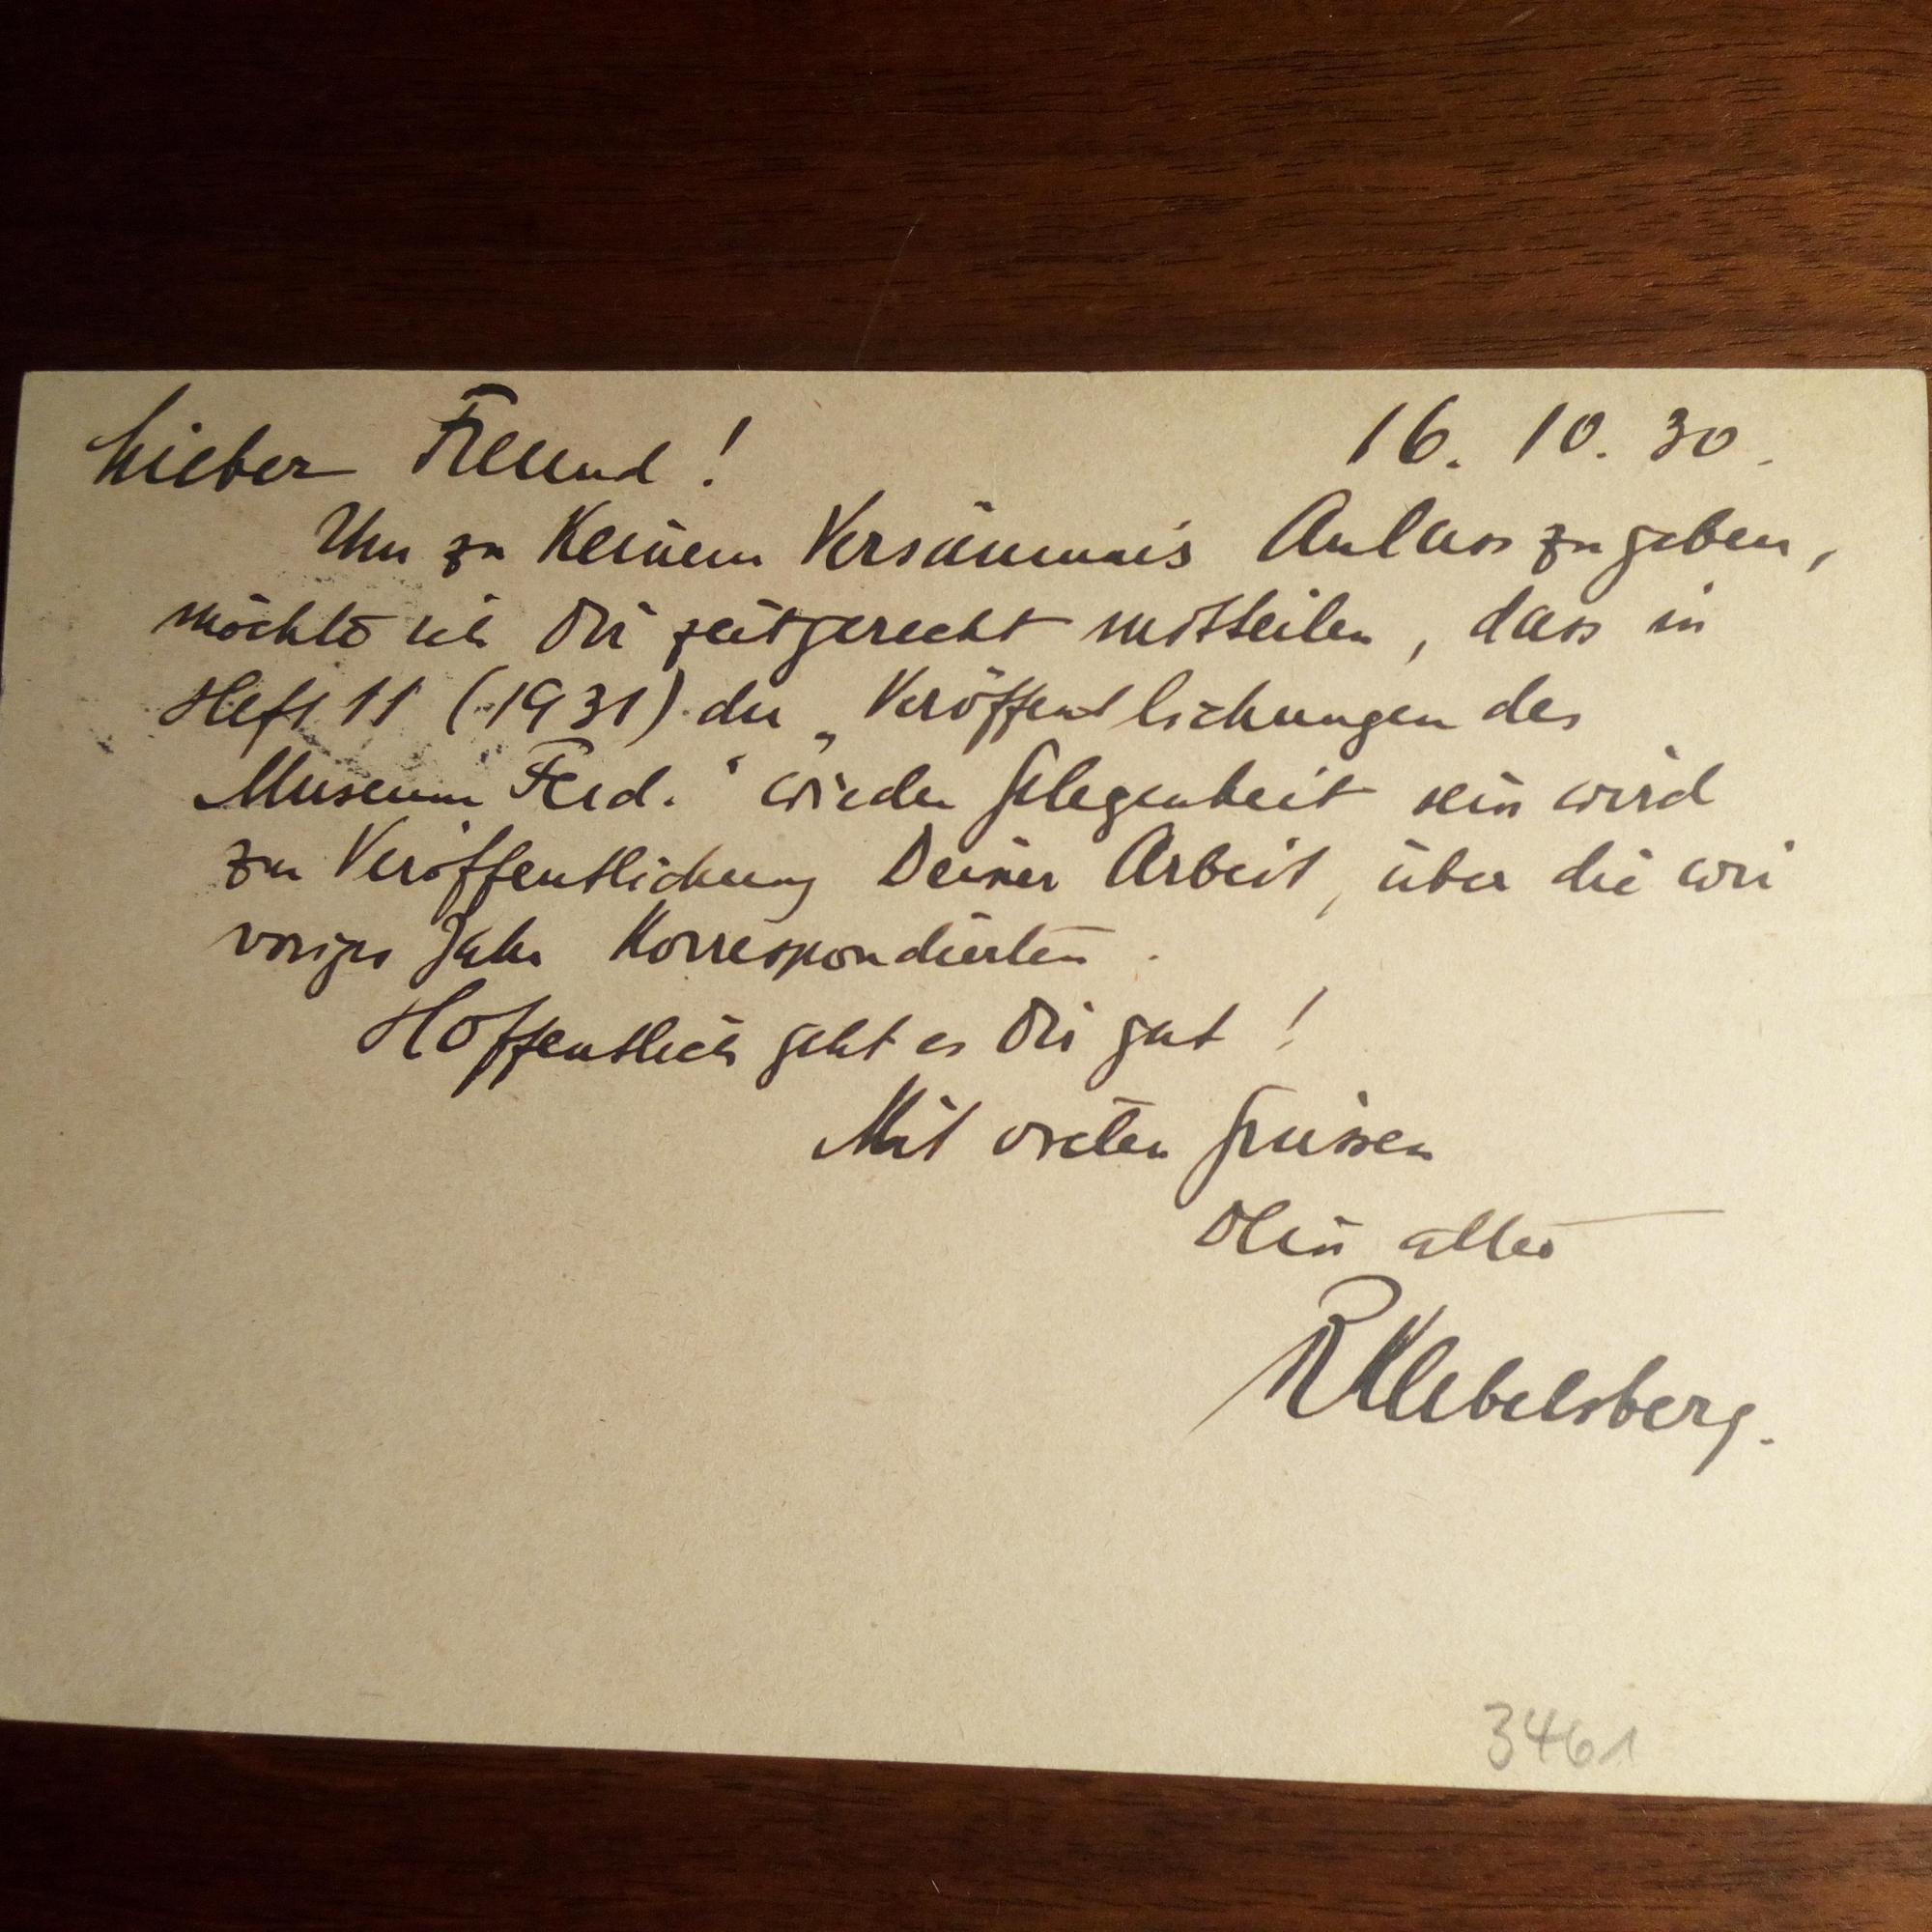 Lieber Freund! 16. 10. 30.
Um zu keinem Versäumnis Anlass zu geben,
möchte ich Dir zeitgerecht mitteilen, dass in
Heft 11 (1931) der „Veröffentlichungen des
Museum Ferd.“ wieder Gelegenheit sein wird
zur Veröffentlichung Deiner Arbeit, über die wir
voriges Jahr korrespondierten.
Hoffentlich geht es Dir gut!
Mit vielen Grüssen
Dein alter
R Klebelsberg.
3461